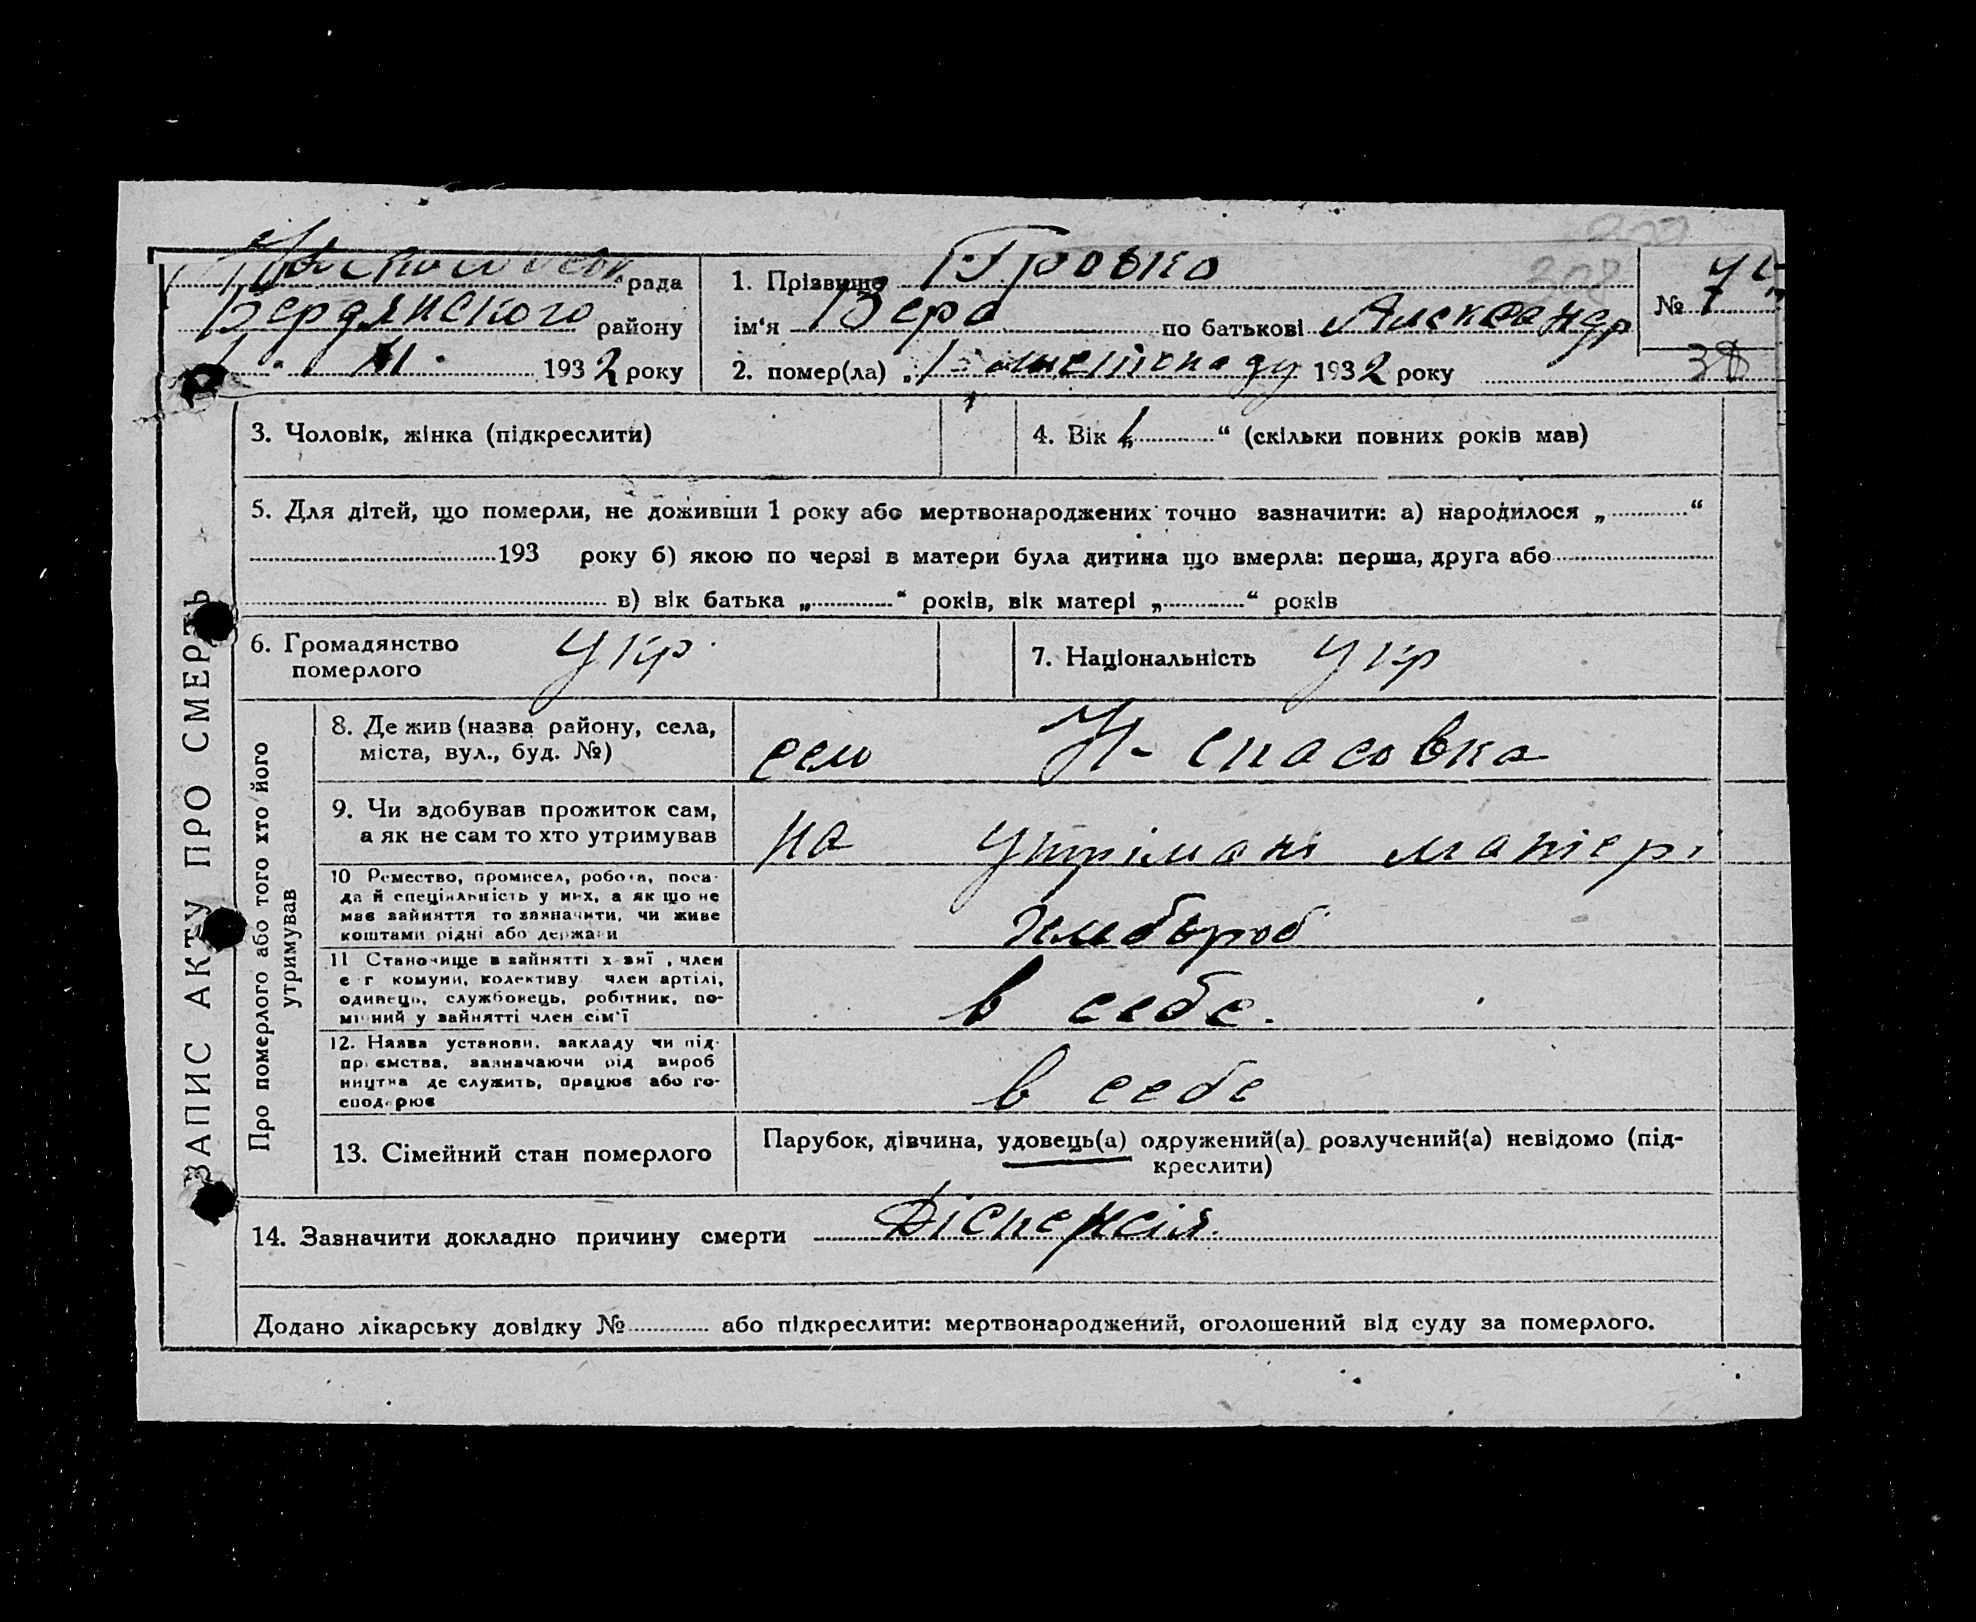 рада
Бердянского району
1. XI. 1932 року
1. Прізвище Гровко
308
ім'я Вера по батькові Александр
№
2. помер(ла) „1 лыстопаду 1932 року
38
3. Чоловік, жінка (підкреслити)
4. Вік „1“ (скільки повних років мав)
5. Для дітей, що померли, не доживши 1 року або мертвонароджених точно зазначити: а) народилося „ “
193 року б) якою по черзі в матери була дитина що вмерла: перша, друга або
в) вік батька „ “ років, вік матері „ “ років
6. Громадянство померлого Укр.
7. Національність Укр
ЗАПИС АКТУ ПРО СМЕРТЬ
Про померлого або того хто його утримував
8. Де жив (назва району, села,
міста, вул., буд. №)
село Н-Спасовка
9. Чи здобував прожиток сам,
а як не сам то хто утримував
на утрімані матері
10 Ремество, промисел, робота, поса-
да й спеціяльність у них, а як що не
має зайняття то зазначити, чи живе
коштами рідні або держави
11 Становище в зайнятті х-вні, член
с г комуни, колективу член артілі,
одинець, службовець, робітник, по-
мічний у зайнятті член сім'ї
в себе.
12. Назва установи, закладу чи під-
приємства, зазначаючи рід вироб
ництва де служить, працює або го-
сподарює
в себе
13. Сімейний стан померлого
Парубок, дівчина, удовець(а) одружений(а) розлучений(а) невідомо (під-
креслити)
14. Зазначити докладно причину смерти Діспенсія.
Додано лікарську довідку № або підкреслити: мертвонароджений, оголошений від суду за померлого.